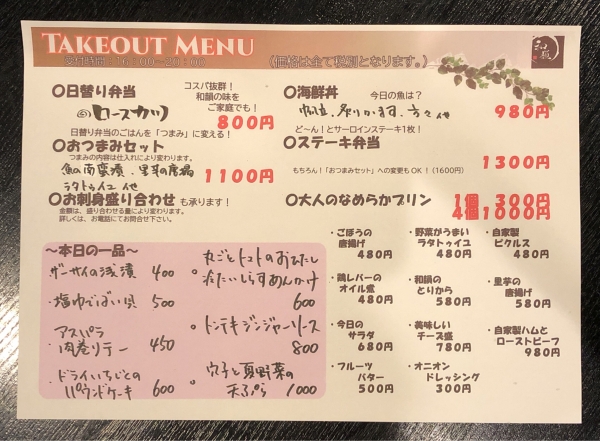 TAKEOUT MENU
受付時間：16：00～20：00
（価格は全て税別となります。）
和韻
〇日替り弁当
コスパ抜群！
和韻の味を
ご家庭でも！
ロースカツ
800円
日替り弁当のごはんを「つまみ」に変える！
〇おつまみセット
つまみの内容は仕入れにより変わります。
魚の南蛮漬、里芋の唐揚
ラタトゥイユ 他
1100円
〇お刺身盛り合わせ も承ります！
金額は、盛り合わせる量により変わります。
詳しくは、お電話にてお問合せ下さい。
〇海鮮丼
今日の魚は？
帆立、炙りかます、 他
980円
ど～ん！とサーロインステーキ1枚！
〇ステーキ弁当
1300円
もちろん！「おつまみセット」への変更もOK！（1600円）
〇大人のなめらかプリン
1個 300円
4個1000円
～本日の一品～
ザーサイの浅漬 400
・塩ゆでばい貝 500
・アスパラ
肉巻リテー 450
・ドライいちじくの
パウンドケーキ 600
丸ごとトマトのおひたし
冷たいしらすあんかけ
600
・トンテキジンジャーソース
800
・穴子と夏野菜の
天ぷら 1000
・ごぼうの
唐揚げ
480円
・野菜がうまい
ラタトゥイユ
480円
・自家製
ピクルス
480円
・鶏レバーの
オイル煮
480円
・和韻の
とりから
580円
・里芋の
唐揚げ
580円
・今日の
サラダ
680円
・美味しい
チーズ盛
780円
・自家製ハムと
ローストビーフ
980円
・フルーツ
バター
500円
・オニオン
ドレッシング
300円